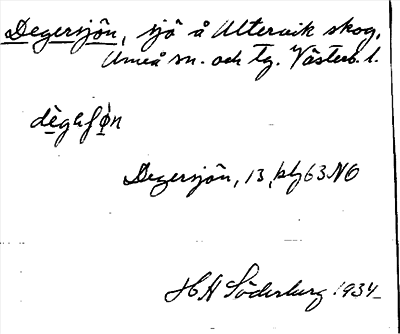 Degersjön, sjö å Ultervik skog,
Umeå sn. och tg. Västerb. l.
Degersjön, 13, 63 NO
H A Söderberg 1934